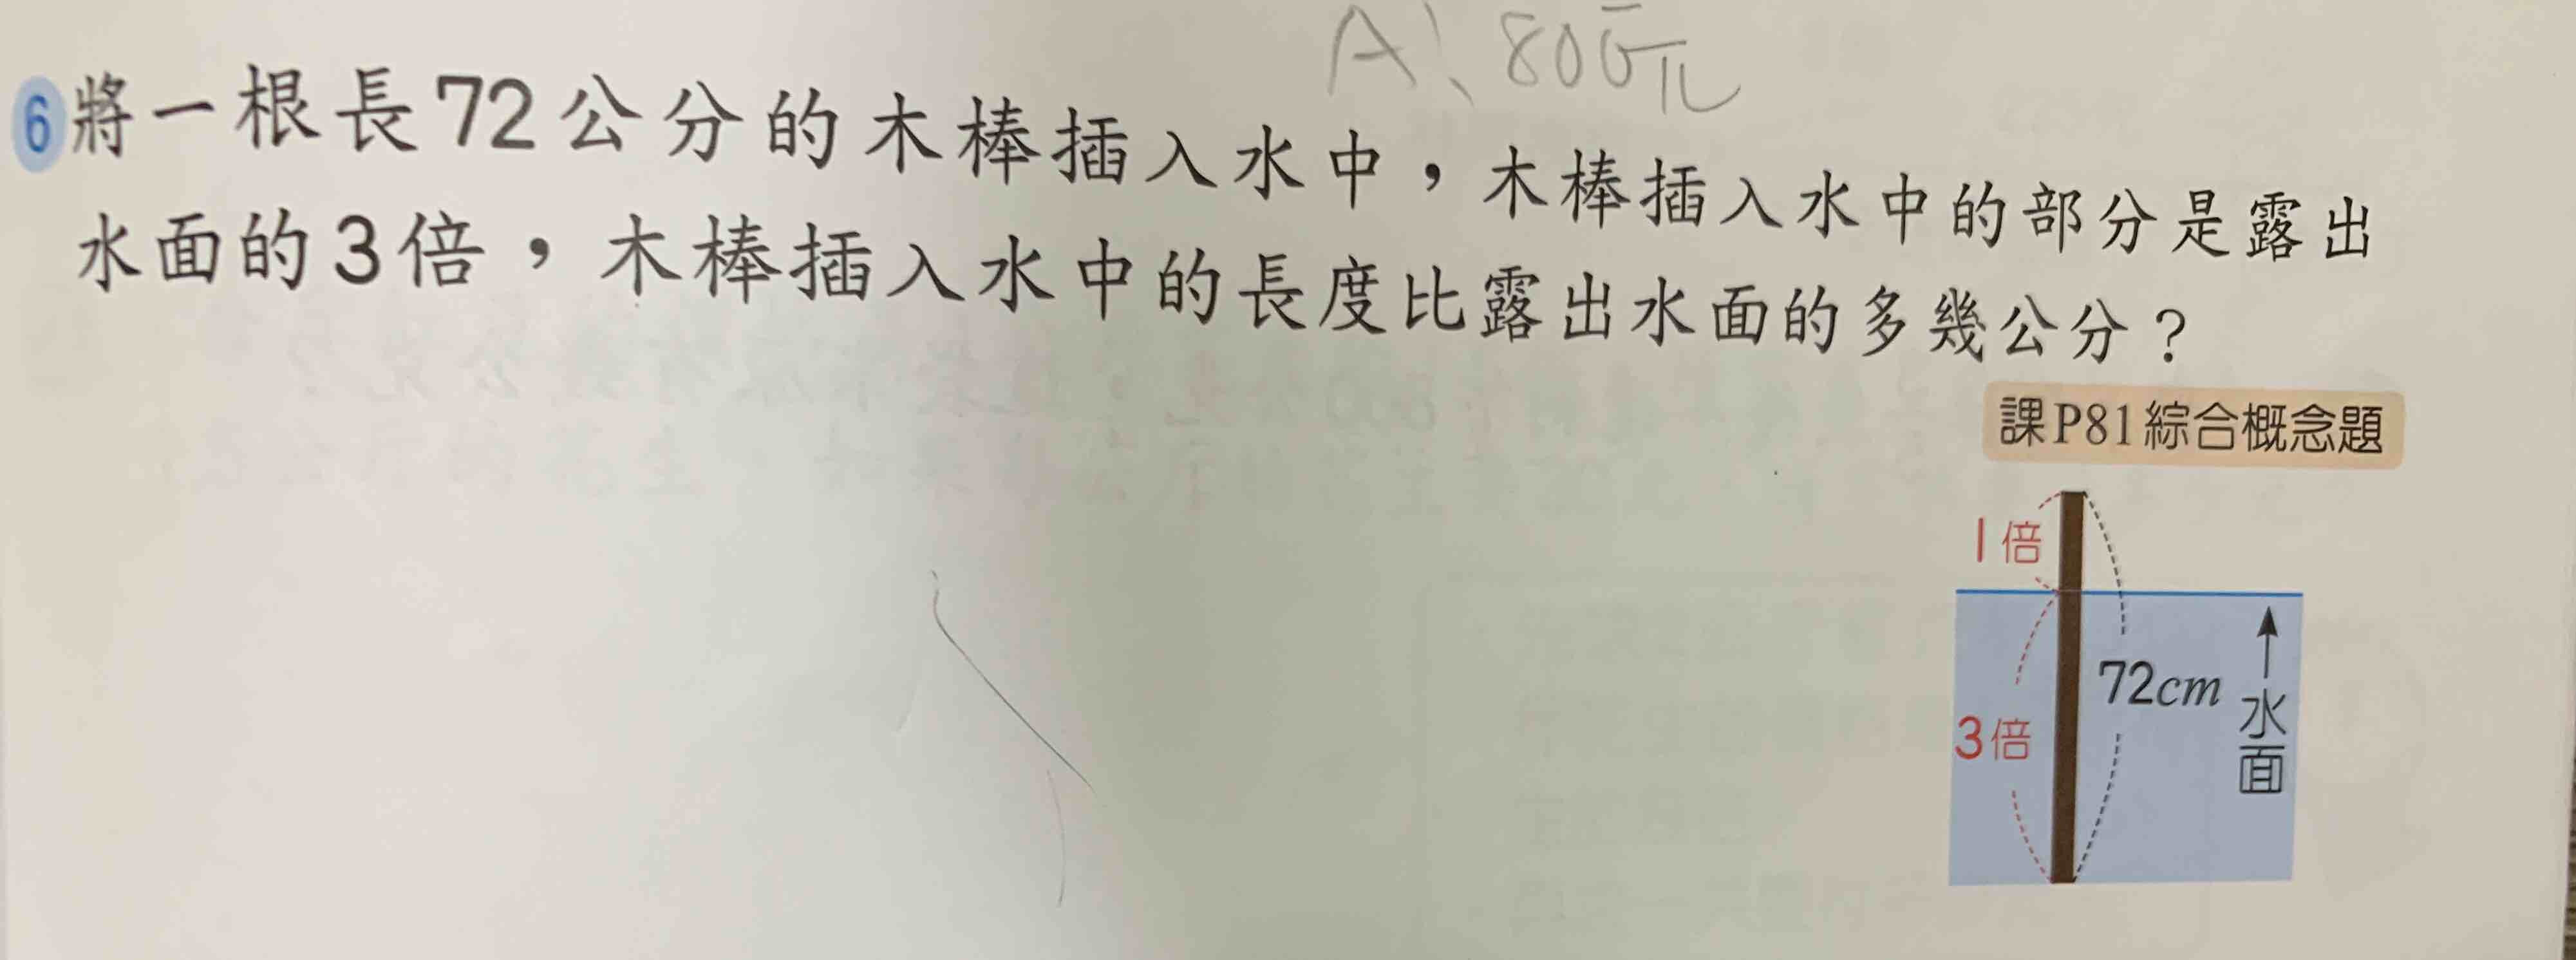 A、800元
6 將一根長72公分的木棒插入水中，木棒插入水中的部分是露出
水面的3倍，木棒插入水中的長度比露出水面的多幾公分？
課P81綜合概念題
1倍
72cm
水面
3倍